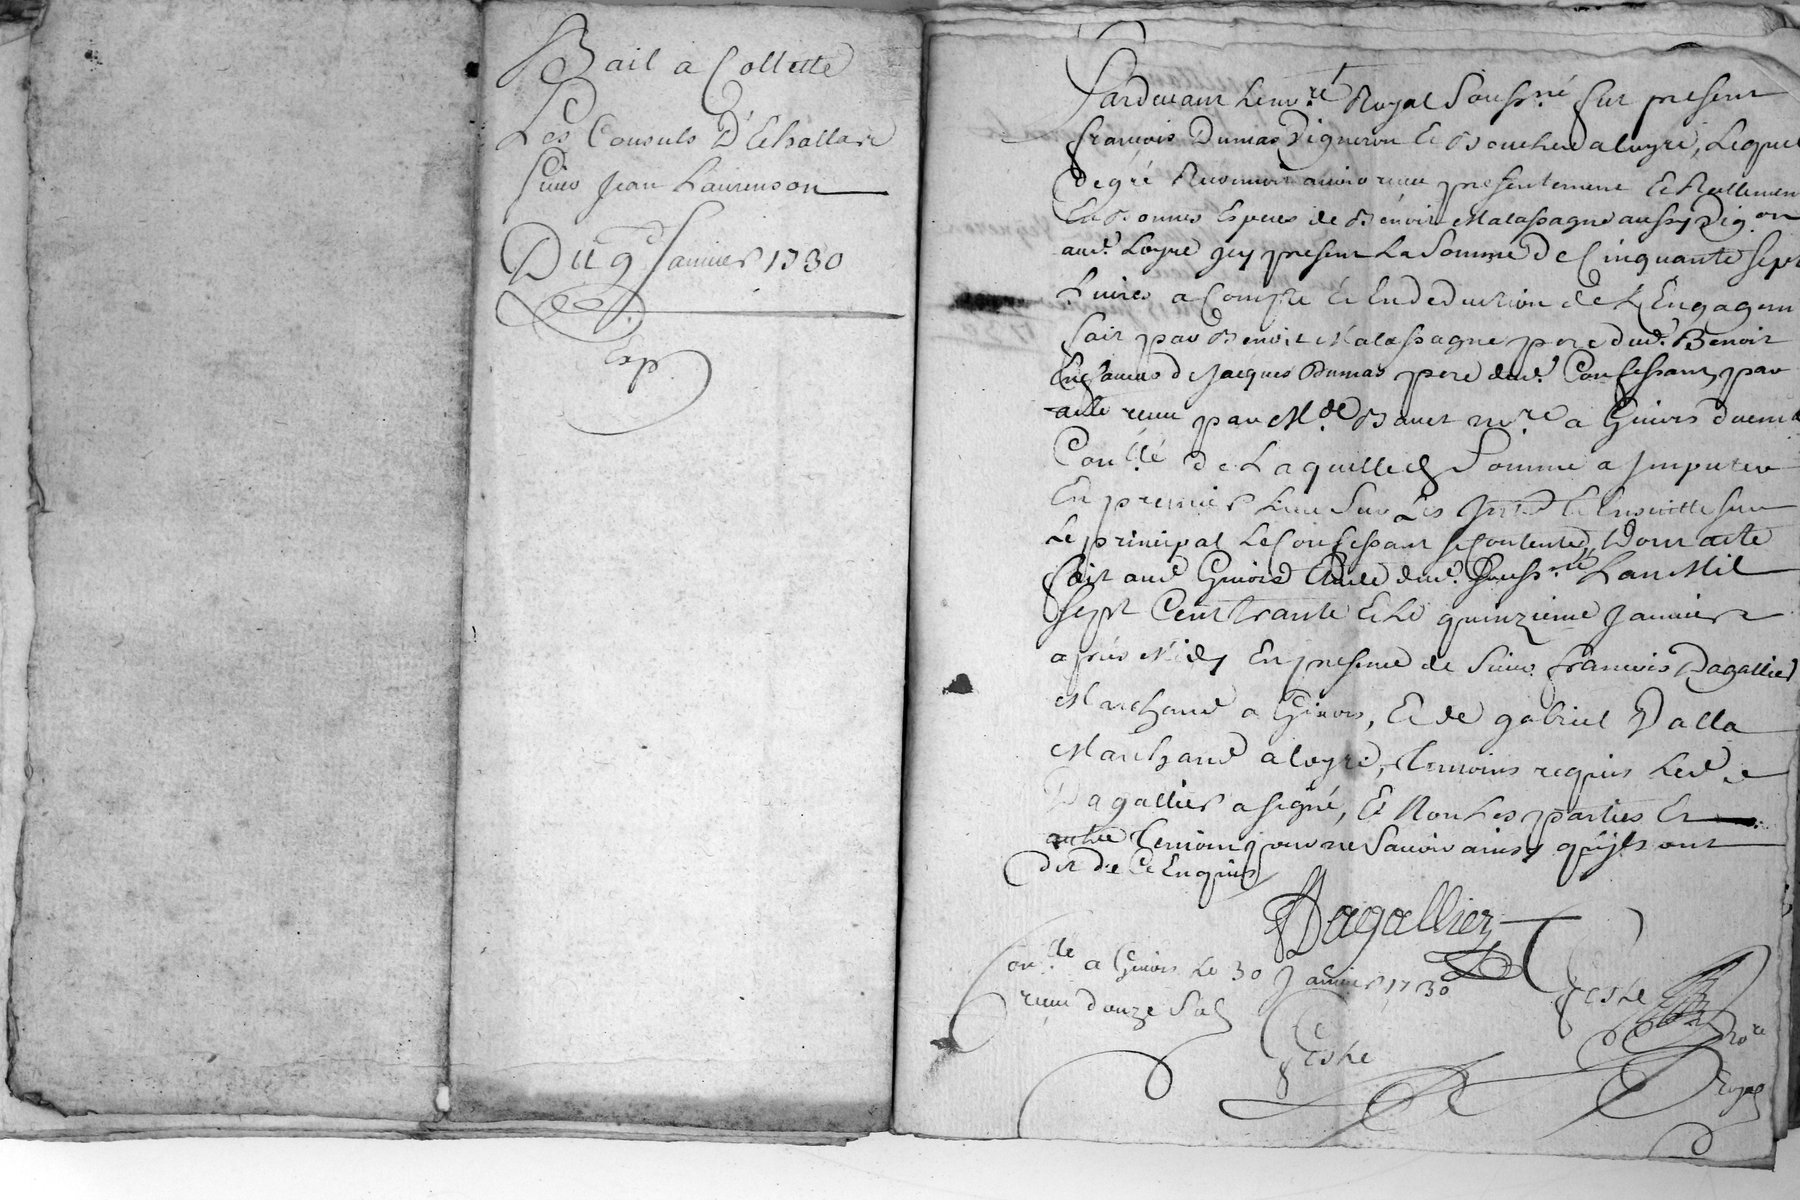 Bail a Collette
Les Consuls D'Echallas
Sieur Jean Laurenson
Du 9e Janvier 1730
Exp
Pardevant le nore Royal Soussné fut present
françois Dumas Vigneron Et Boucher a loyre, Lequel
de gré Reconnoit avoir receu presentement Et Reellemen
En Bonnes Especes de Benoit Malassagne aussy Vigon
aud. Loyre icy present La Somme de Cinquante Sept
Livres a Compte Et En deduction de L'Engagem
fait par Benoit Malassagne pere dud. Benoit
En faveur de Jacques Dumas pere dud. Confessant, par
acte receu par Me. Bavet nore a Givors duem
Conllé de Laquelle Somme a Imputer
En premier Lieu Sur Les Intts Et Ensuitte sur
Le principal Le Confessant se Contente, Dont acte
fait aud Givors Etude dud. Soussné Lan Mil
Sept Cent trante Et Le quinzieme Janvier
après Midy En presence de Sieur françois Dagallier
Marchand a Givors, Et de gabriel Dalla
Marchand a loyre, temoins requis Led.
Dagallier a signé, Et Non Les parties Et
autre temoin pour ne Savoir ainsy qu'ils ont
dit de Ce Enquis
Dagallier
Conllé a Givors Le 30 Janvier 1730
receu douze Sols
Geste
Geste
Nore
Royal